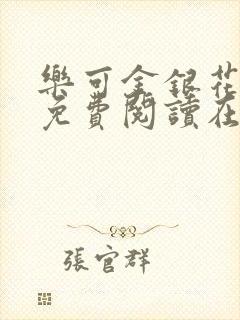 樂可金銀花
免費閱讀在
張官群